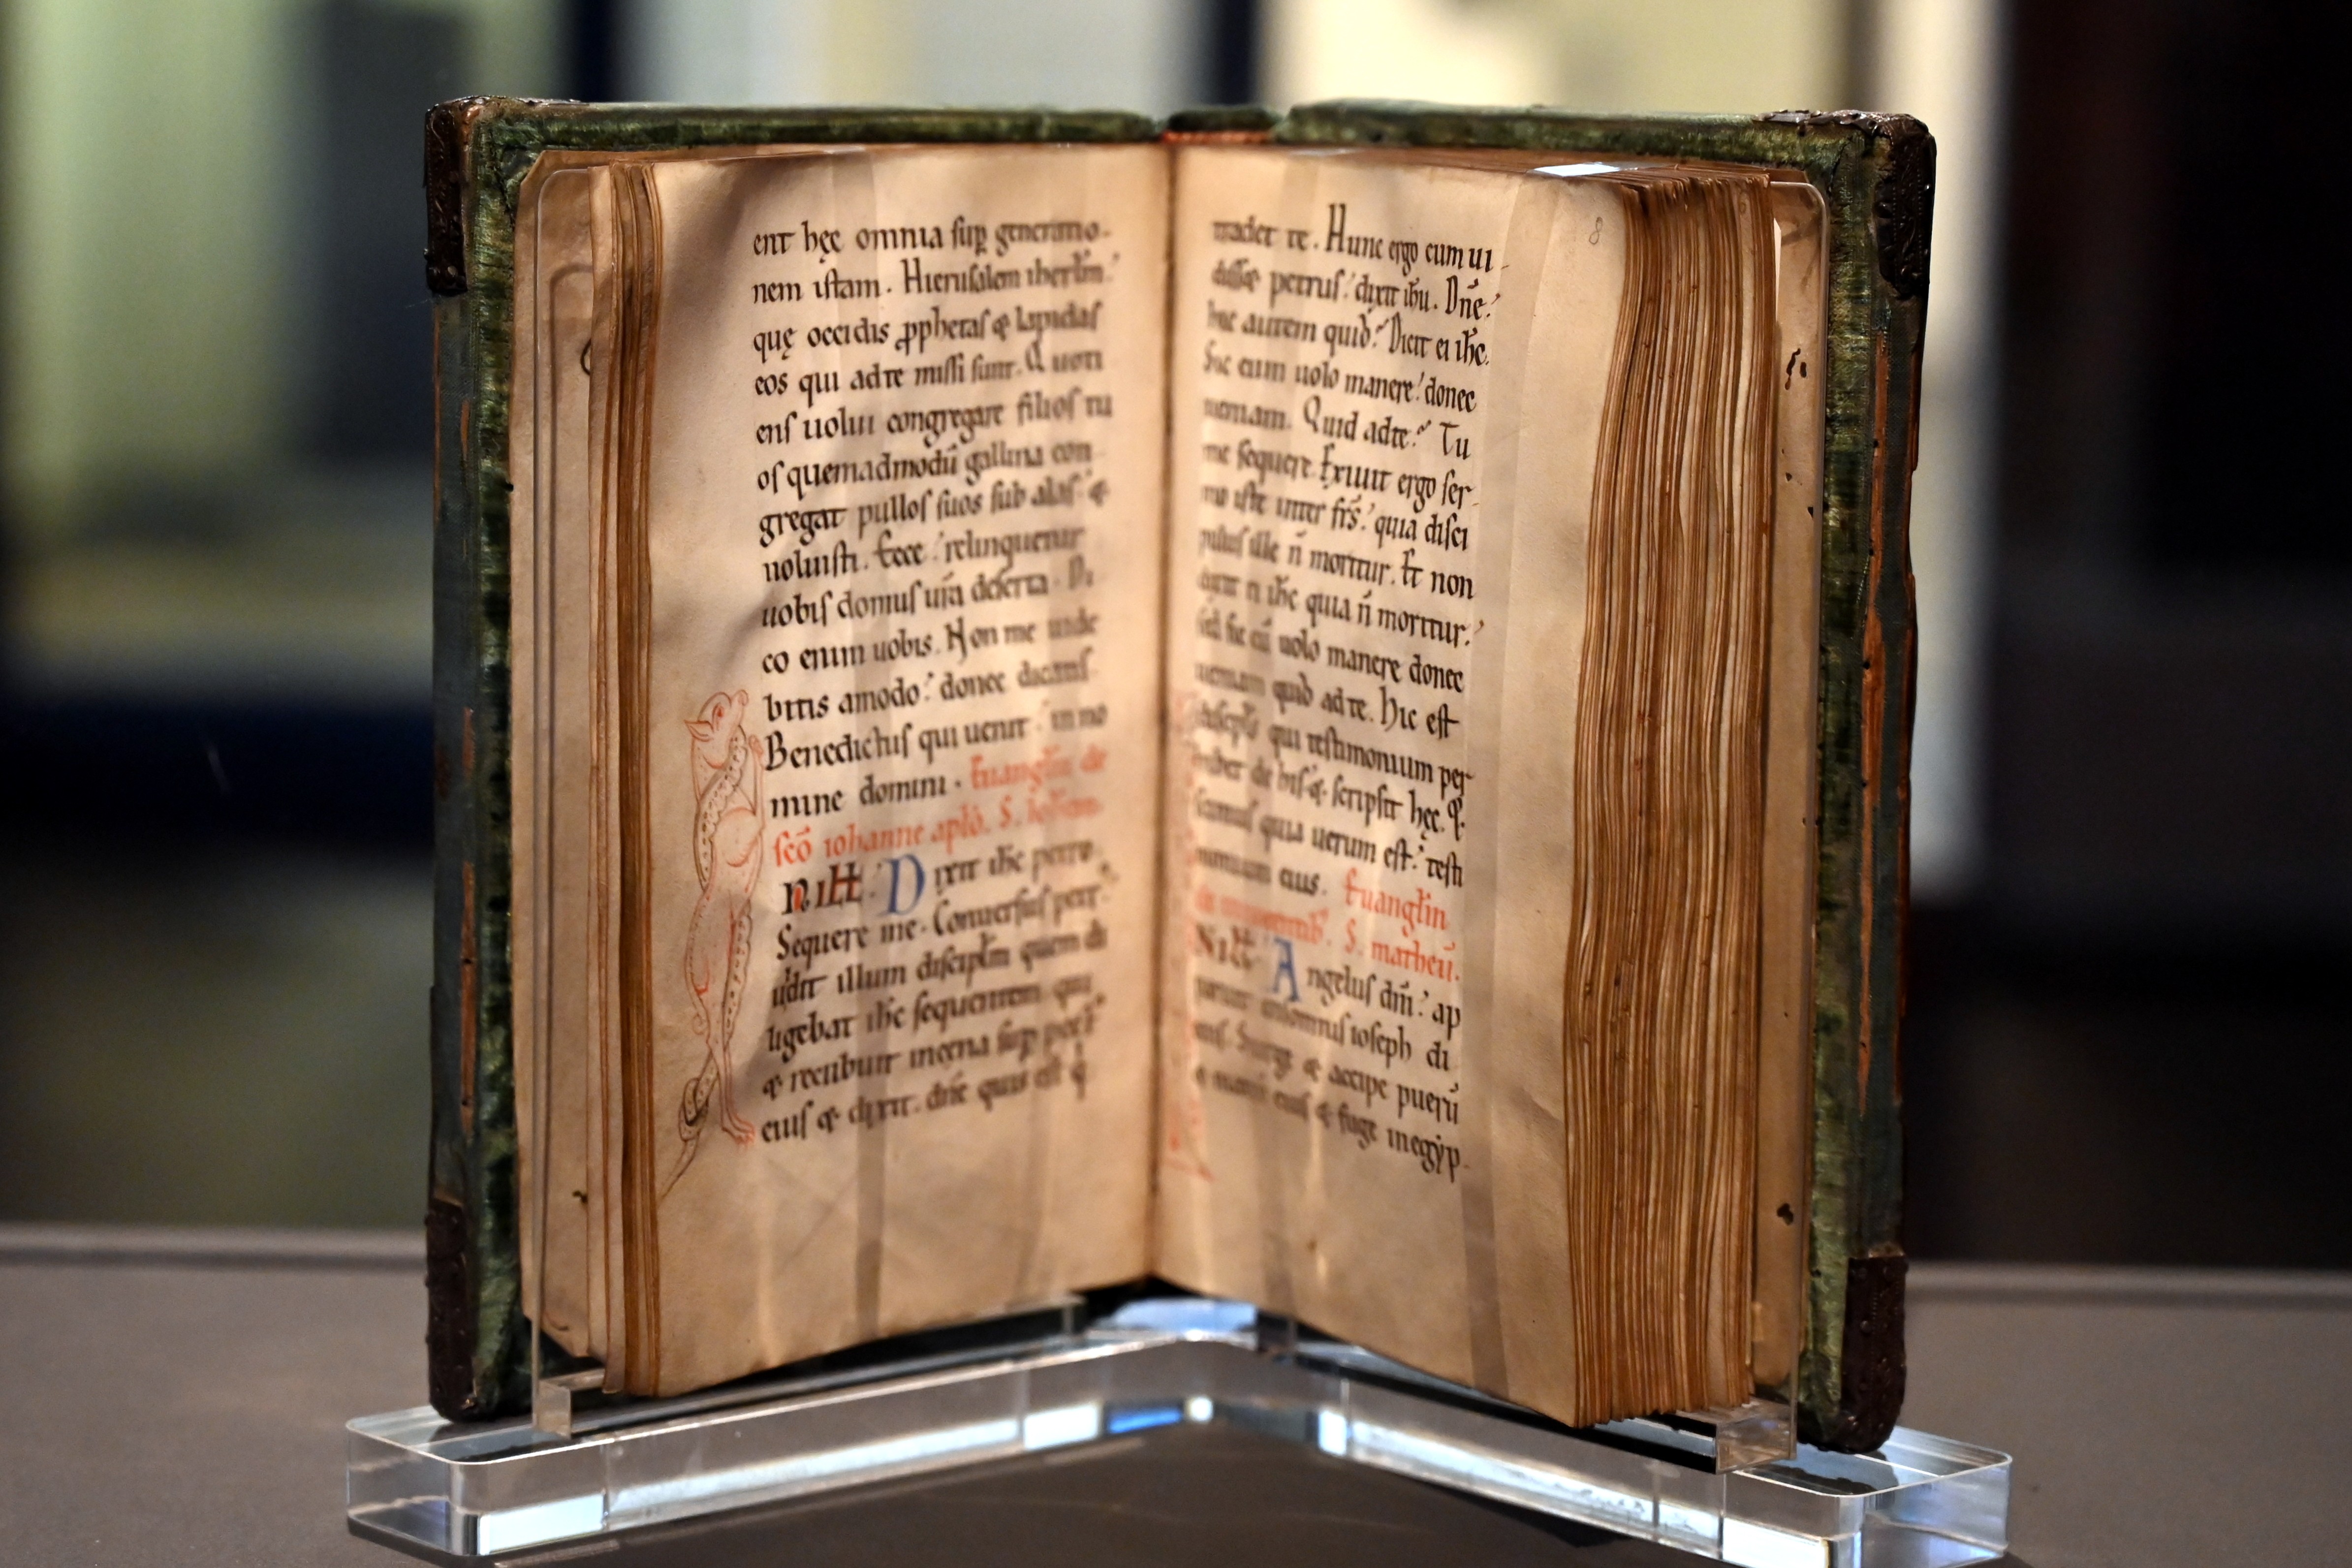 ent hęc omnia sup generatio-
nem istam. Hierusalem iherłm.
quę occidis ꝓphetas & lapidas
eos qui adte missi sunt. Quoti
ens uolui congregare filios tu
os quemadmodū gallina con
gregat pullos suos sub alas. &
noluisti. Ecce relinquetur
uobis domus ur̄a deserta. Di
co enim uobis. Non me uide
bitis amodo donec dicatis.
Benedictus qui uenit in no
mine domini. Euangłm de
sc̄o iohanne aplō. S. iohem.
N ilł. Dixit ih̄c petro.
Sequere me. Conuersus petr
uidit illum discipłm quem di
ligebat ih̄c sequentem qui
& recubuit incena sup pect
eius & dixit. dn̄e quis est q
8
tradet te. Hunc ergo cum ui
disset petrus dixit ih̄u. Dn̄e
hic autem quid? Dicit ei ih̄c.
Sic eum uolo manere donec
ueniam. Quid adte? Tu
me sequere. Exiuit ergo ser
mo iste inter fr̄s. quia disci
pulus ille n̄ moritur. Et non
dixit ei ih̄c quia n̄ moritur.
sed sic eū uolo manere donec
ueniam quid adte. Hic est
discipłs qui testimonium per
hibet de his & scripsit hęc. &
scimus quia uerum est testi
monium eius. Euangłm
de innocentib. S. matheū.
N ilł. Angelus dn̄i ap
paruit insomnis ioseph di
cens. Surge & accipe puerū
& matrē eius & fuge inegyp-